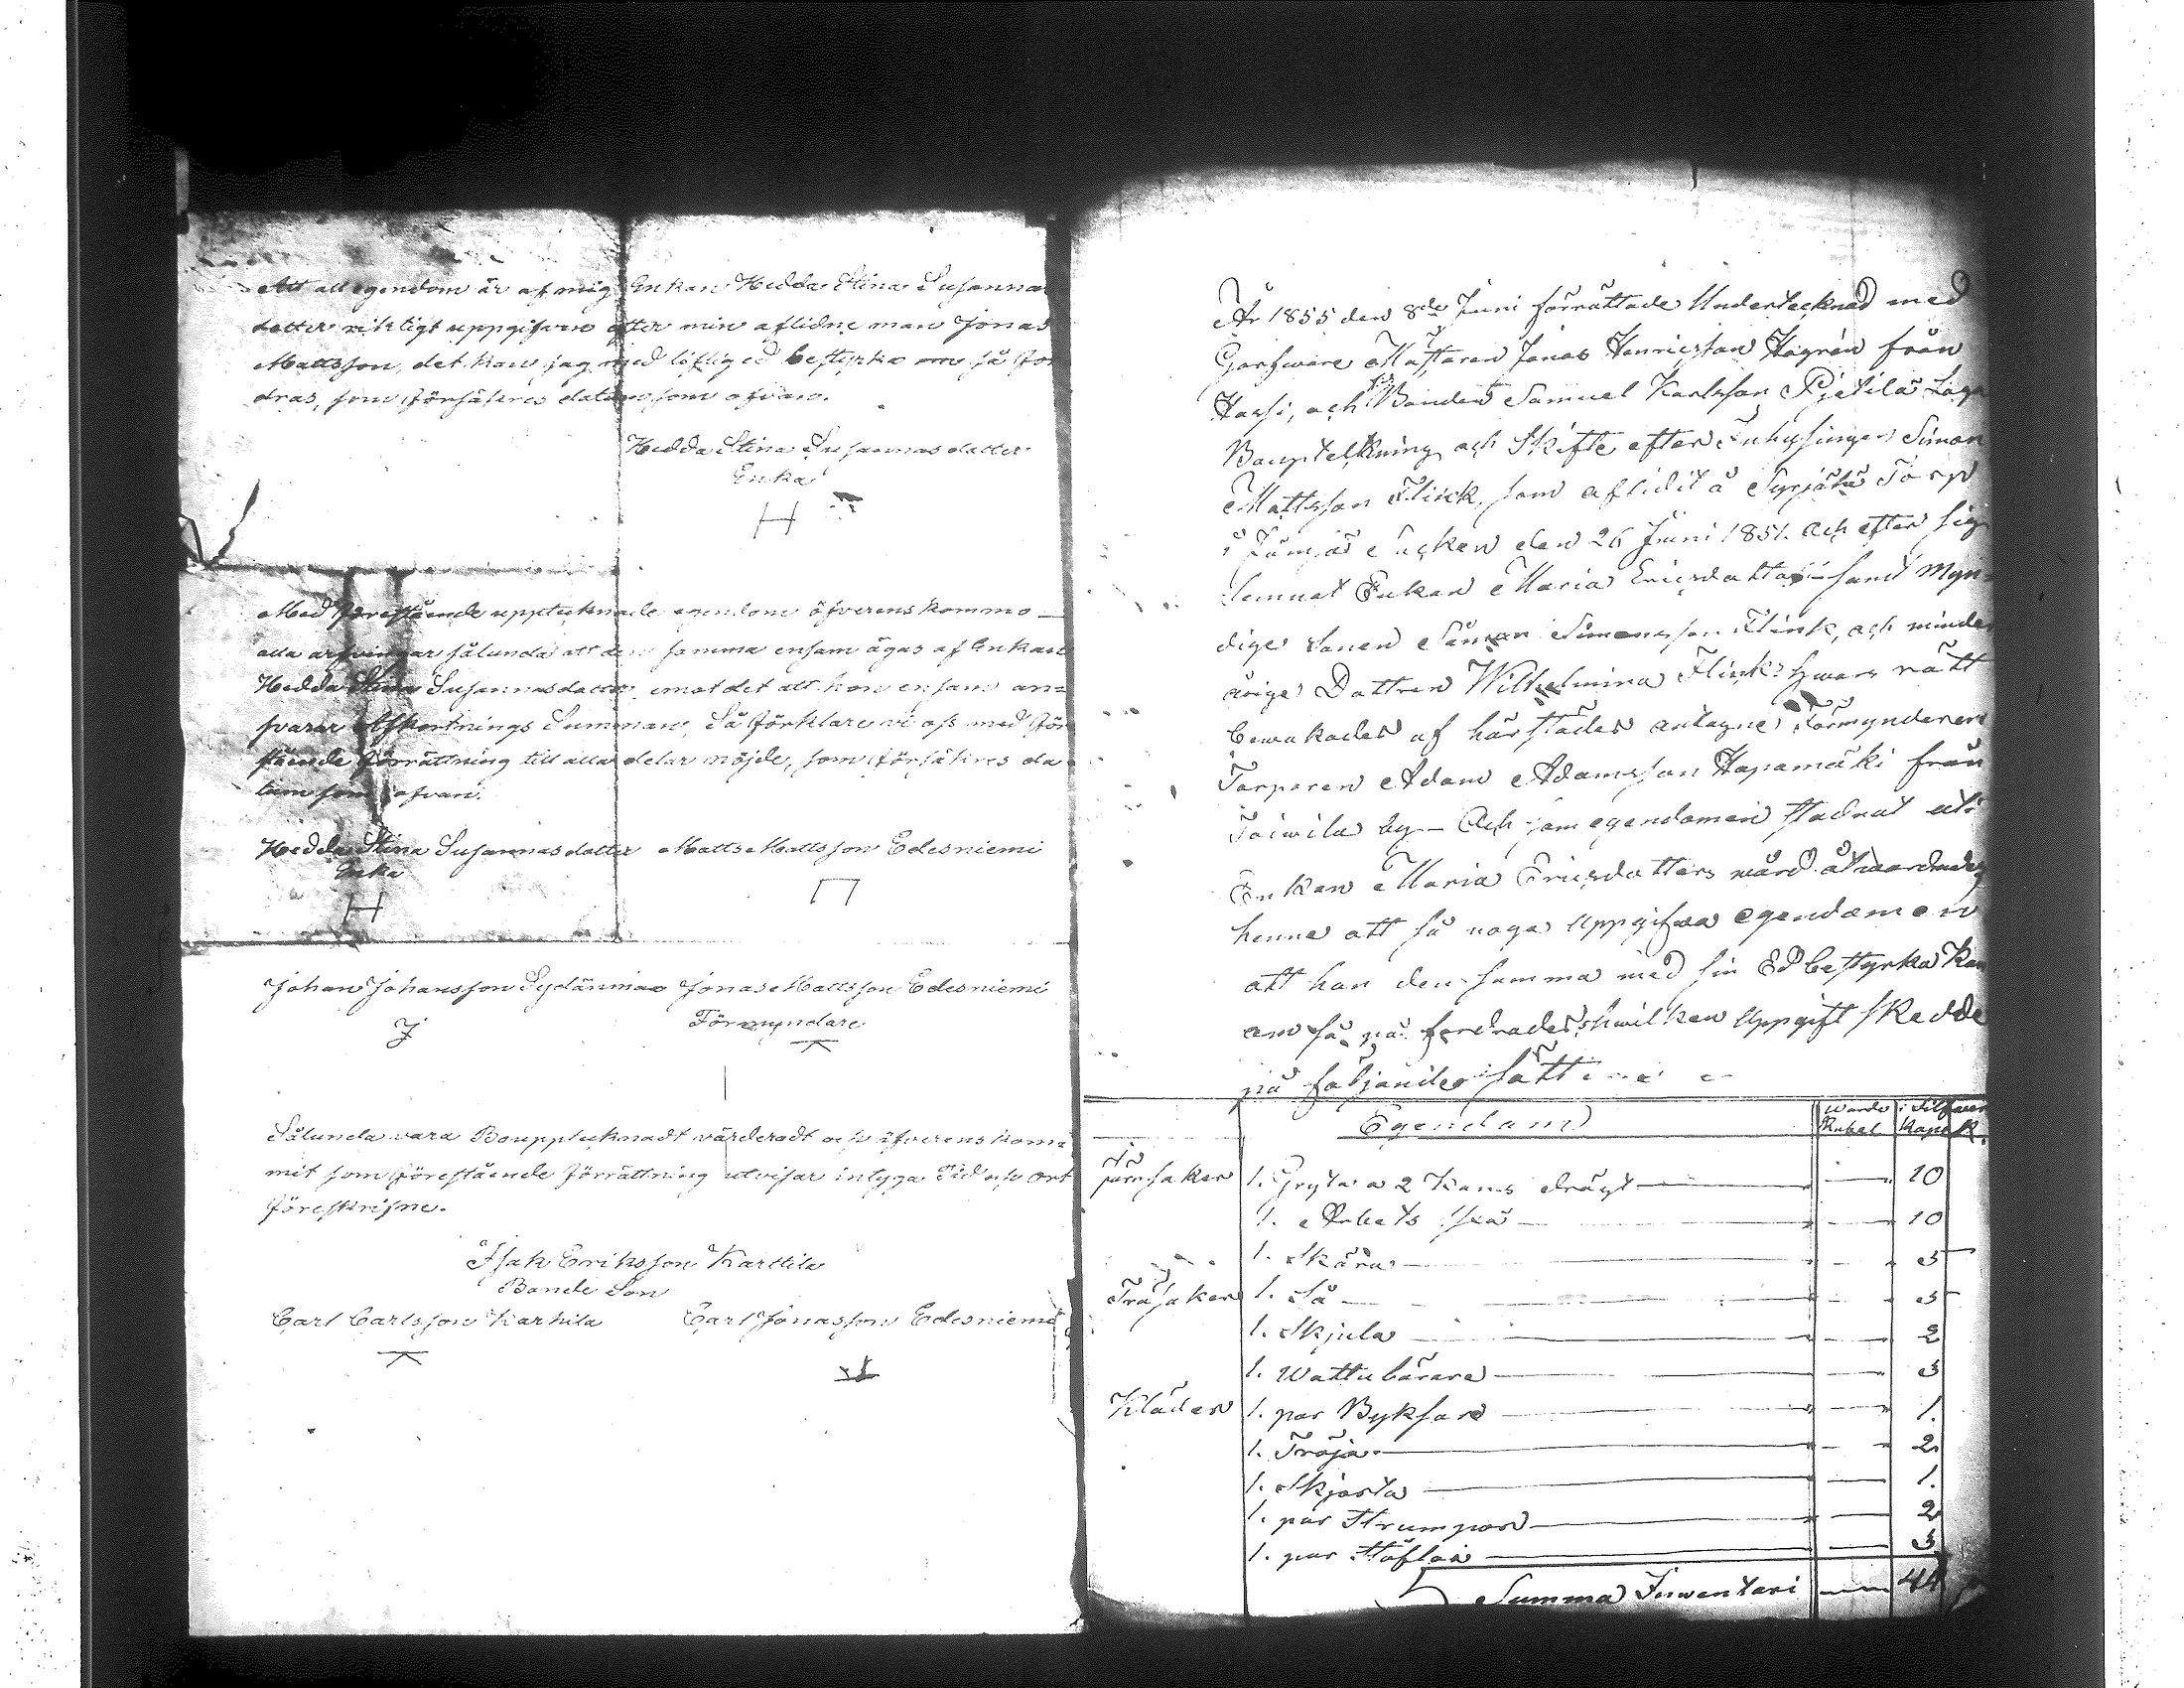 Att all egendom är af mig Enkan Hedda Stina Susannas
dotter riktigt uppgifven efter min aflidne man Jonas
Mattsson, det kan jag med liflig ed bestyrka om så for
dras, som försäkres datum som ofvan.
Hedda Stina Susannasdotter
Enka
H
Med förestående upptecknade egendom öfverenskommo
alla arfvingar sålunda att den samma ensam ägas af Enkan
Hedda Stina Susannasdotter, emot det att hon ensam an=
svarar Afkortnings Summan, Så förklare vi oss med före
stående förrättning till alla delar nöjde, som försäkres da
tum som ofvan.
Hedda Stina Susannasdotter Matts Mattsson Edesniemi
Enka
H
Johan Johansson Sydänmaa Jonas Mattsson Edesniemi
Förmyndare
Sålunda vara Boupptecknadt värderadt och öfverenskom
mit som förestående förrättning utvisar intyga Tid och ort
föreskrifne.
Isak Eriksson Karttila
Bonde Son
Carl Carlsson Karhila Carl Jonasson Edesniemi
År 1855 den 8de Juni förrättade Undertecknad med
Garfware Mästaren Jonas Henricsson Hagrén från
Harsi, och Bonden Samuel Karlsson Pjetilä Laga
Bouptekning och Skifte efter Inhysingen Simon
Mattsson Flink, som aflidit å Syrjälä Torp
i Socken den 26 Juni 1851. och efter sig
lemnat Enkan Maria Ericsdotter samt Myn=
dige Sonen Simon Simonsson Flink, och minder
årige Dottren Wilhelmina Flink hwars rätt
bewakades af härstädes antagne Förmynderen
Torparen Adam Adamsson Hapamäki från
by — Och som egendomen stadnat uti
Enkan Maria Ericsdotters wård
henne att så noga uppgifwa egendomen
att hon den samma med sin Ed bestyrka kan
om så på fordrades, hwilken Uppgift skedde
på följande sätt
Egendom Wärde i Silfwer
Rubel Kopek.
Järnsaker 1. Gryta a 2 Kans drägt — 10
1. Arbets yxa — 10
1. Skära — 5
Träsaker 1. Så — 5
1. Skjula — 2
1. Wattubärare — 3
Kläder 1. par Byksor — 1.
1. Tröja — 2.
1. Skjorta — 1.
1. par Strumpor — 2
1. par Stöflar — 3
Summa Inwentari — 44